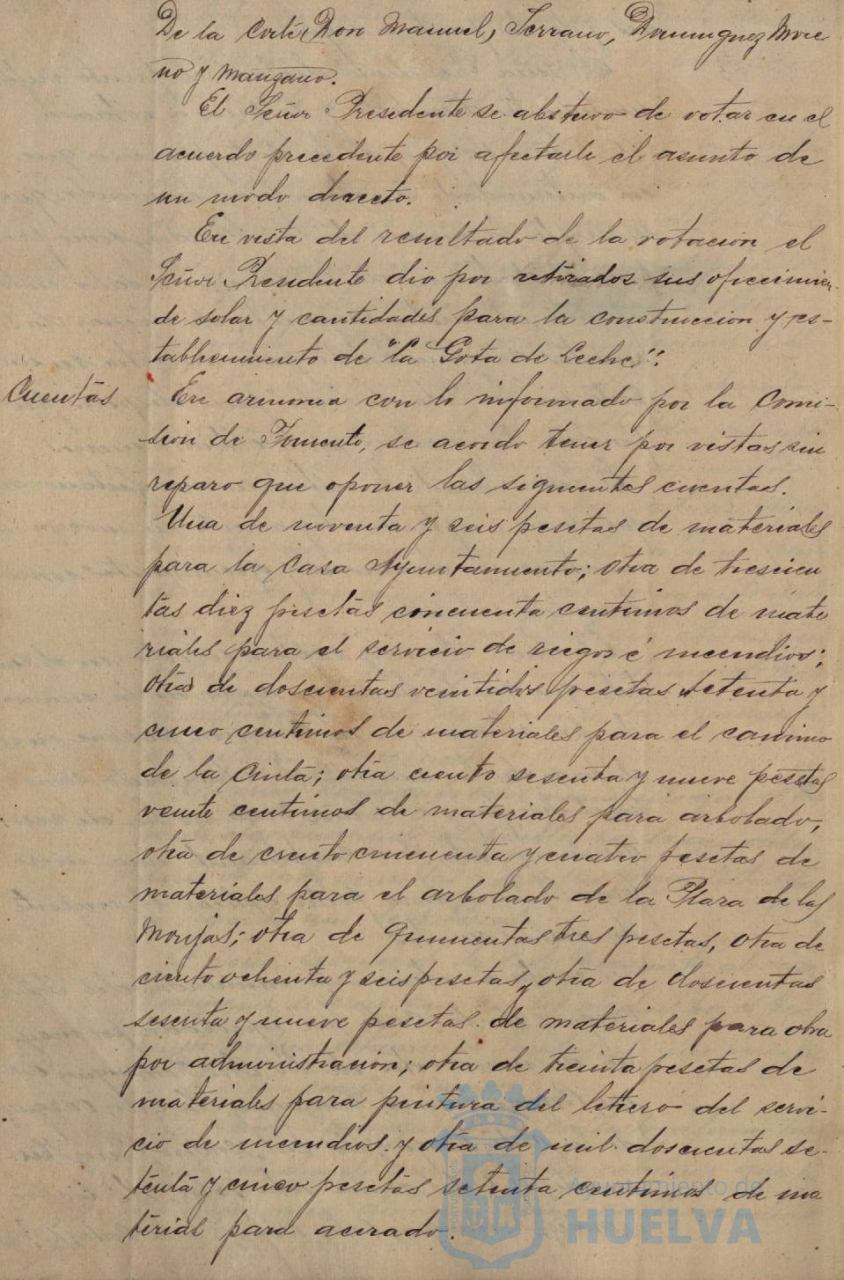 De la Corte (Don Manuel), Serrano, Dominguez More
no y Manzano.
El Señor Presidente se abstuvo de votar en el
acuerdo precedente por afectarle el asunto de
un modo directo.
En vista del resultado de la votacion el
Señor Presidente dio por retirados sus ofrecimien
de solar y cantidades para la construccion y es-
tablecimiento de "la Gota de Leche".
Cuentas
En armonia con lo informado por la Comi-
sion de Fomento, se acordo tener por vistas sin
reparo que oponer las siguientes cuentas.
Una de noventa y seis pesetas de materiales
para la Casa Ayuntamiento; otra de trescien
tas diez pesetas cincuenta centimos de mate
riales para el servicio de riegos é incendios;
otra de doscientas veintidos pesetas setenta y
cinco centimos de materiales para el camino
de la Cinta; otra ciento sesenta y nueve pesetas
veinte centimos de materiales para arbolado,
otra de ciento cincuenta y cuatro pesetas de
materiales para el arbolado de la Plaza de las
Monjas; otra de quinientas tres pesetas, otra de
ciento ochenta y seis pesetas, y otra de doscientas
sesenta y nueve pesetas de materiales para obra
por administración; otra de treinta pesetas de
materiales para pintura del letrero del servi-
cio de incendios y otra de mil doscientas se-
tenta y cinco pesetas setenta centimos de ma
terial para acerado.
Ayuntamiento de
HUELVA